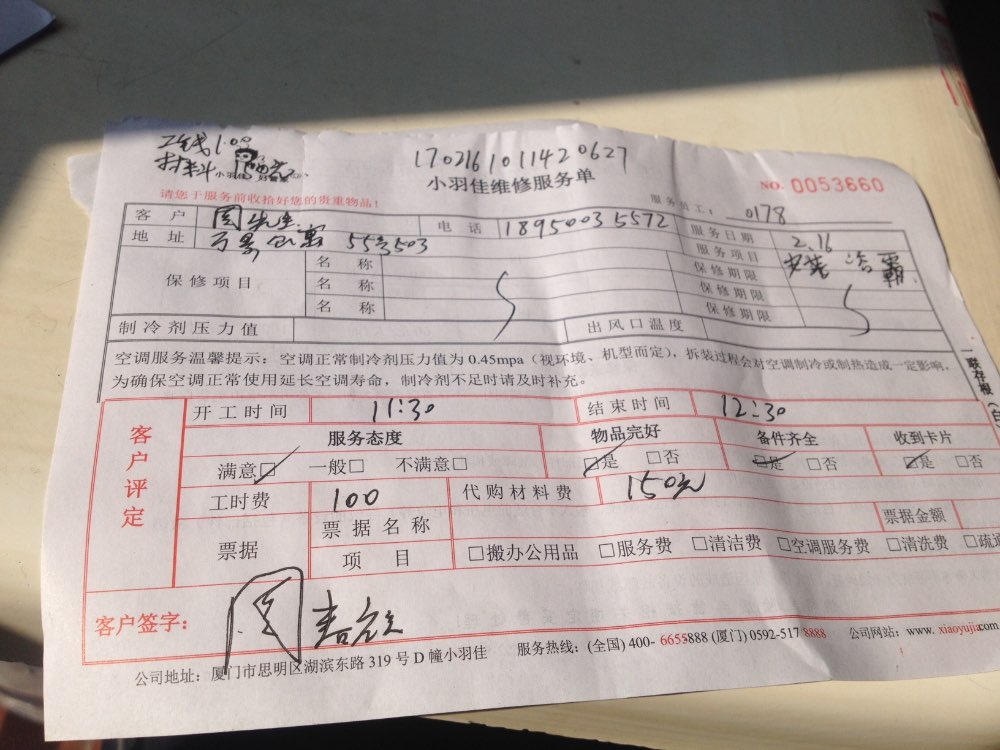 1702161011420627
小羽佳维修服务单
NO. 0053660
请您于服务前收拾好您的贵重物品！
服务员工： 0178
客户 周先生 电话 18950035572 服务日期 2.16
地址 55号503 服务项目 安装浴霸
保修项目 名称 保修期限
名称 保修期限
名称 保修期限
制冷剂压力值 出风口温度
空调服务温馨提示：空调正常制冷剂压力值为0.45mpa（视环境、机型而定），拆装过程会对空调制冷或制热造成一定影响，
为确保空调正常使用延长空调寿命，制冷剂不足时请及时补充。
一联存根
客户评定
开工时间 11:30 结束时间 12:30
服务态度 物品完好 备件齐全 收到卡片
满意□ 一般□ 不满意□ □是 □否 □是 □否 □是 □否
工时费 100 代购材料费 150元
票据 票据名称 票据金额
项目 □搬办公用品 □服务费 □清洁费 □空调服务费 □清洗费 □疏通
客户签字： 周
公司地址：厦门市思明区湖滨东路319号D幢小羽佳 服务热线：(全国) 400-6655888 (厦门) 0592-5178888 公司网站：www.xiaoyujia.com